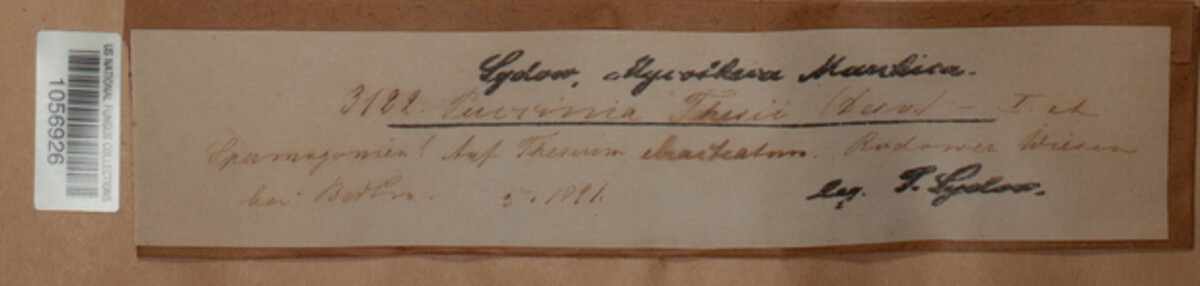 US NATIONAL FUNGUS COLLECTIONS
1056926
Sydow, Mycotheca Marchica.
3122. Puccinia Thesii (Desv.) – I. et
Spermogonien! Auf Thesium ebracteatum. Rudower Wiesen
bei Berlin. 5. 1891.
leg. P. Sydow.